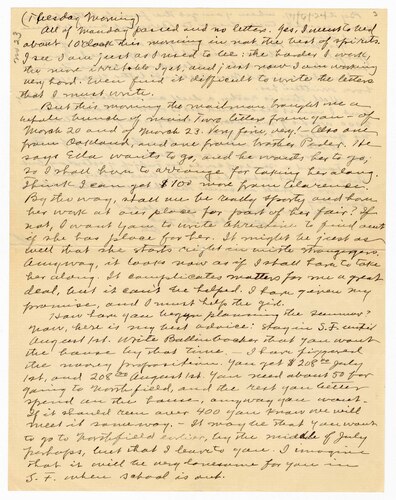 (Tuesday Morning)
All of Monday passed and no letters. Yes, I went to bed
about 10 o'clock this morning in not the best of spirits.
I see I am just as I used to be: the harder I work,
the more irritable I get, and just now I am working
very hard. Even find it difficult to write the letters
that I must write.
But this morning the mailman brought me a
whole bunch of mail. Two letters from you – of
March 20 and of March 23. Very fine, very! – Also one
from Oakland, and one from Brother Pader. He
says Ella wants to go, and he wants her to go,
so I shall have to arrange for taking her along.
Think I can get $100 more from Clarence.
By the way, shall we be really sporty and have
her work at our place for part of her fare? If
not, I want you to write to find out
if she has a place for her. It might be just as
well that she starts right in with
Anyway, it looks now as if I shall have to take
her along. It complicates matters for me a great
deal, but it can't be helped. I have given my
promise, and I must help the girl.
Now have you begun planning the summer?
Now, here is my best advice: Stay in S.F. until
August 1st. Write Ballenbacker that you want
the house by that time. – I have figgered
the money proposition. You get $208 July
1st, and 208 August 1st. You need about 50 for
going to Northfield, and the rest you better
spend on the house, anyway you want.
If it should run over 400 you know we will
meet it someway. – It may be that you want
to go to Northfield earlier, by the middle of July
perhaps, but that I leave to you. I imagine
that it will be very lonesome for you in
S.F. when school is out.